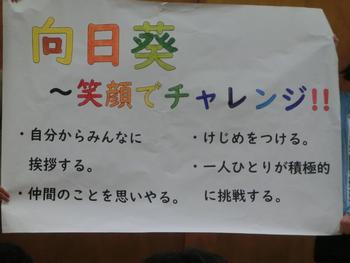 向日葵
～笑顔でチャレンジ!!
・自分からみんなに
挨拶する。
・仲間のことを思いやる。
・けじめをつける。
・一人ひとりが積極的
に挑戦する。